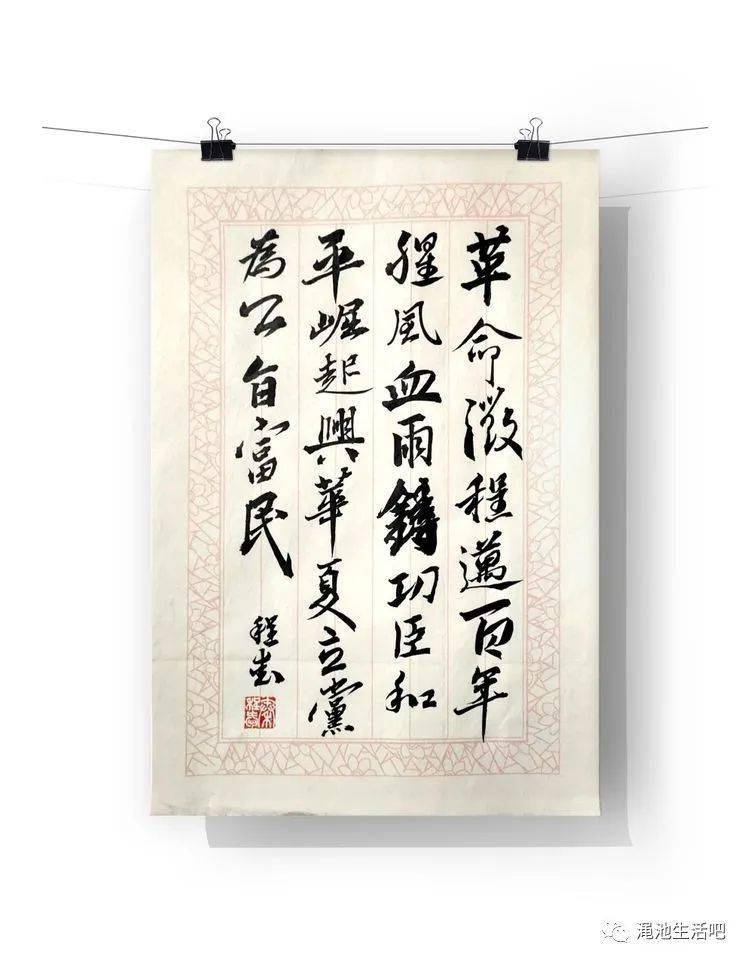 革命徵程邁百年
腥風血雨鑄功臣和
平崛起興華夏立黨
為公自富民
程
渑池生活吧